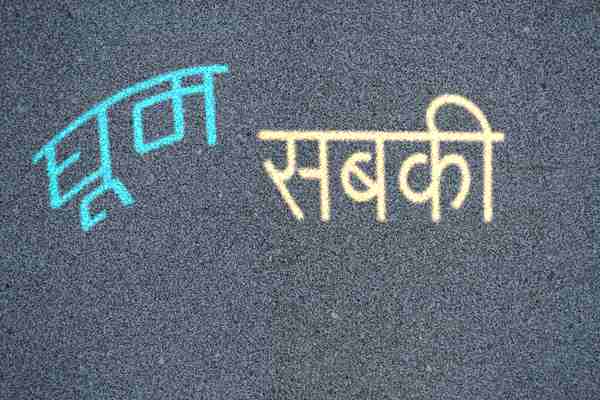 घूम सबकी